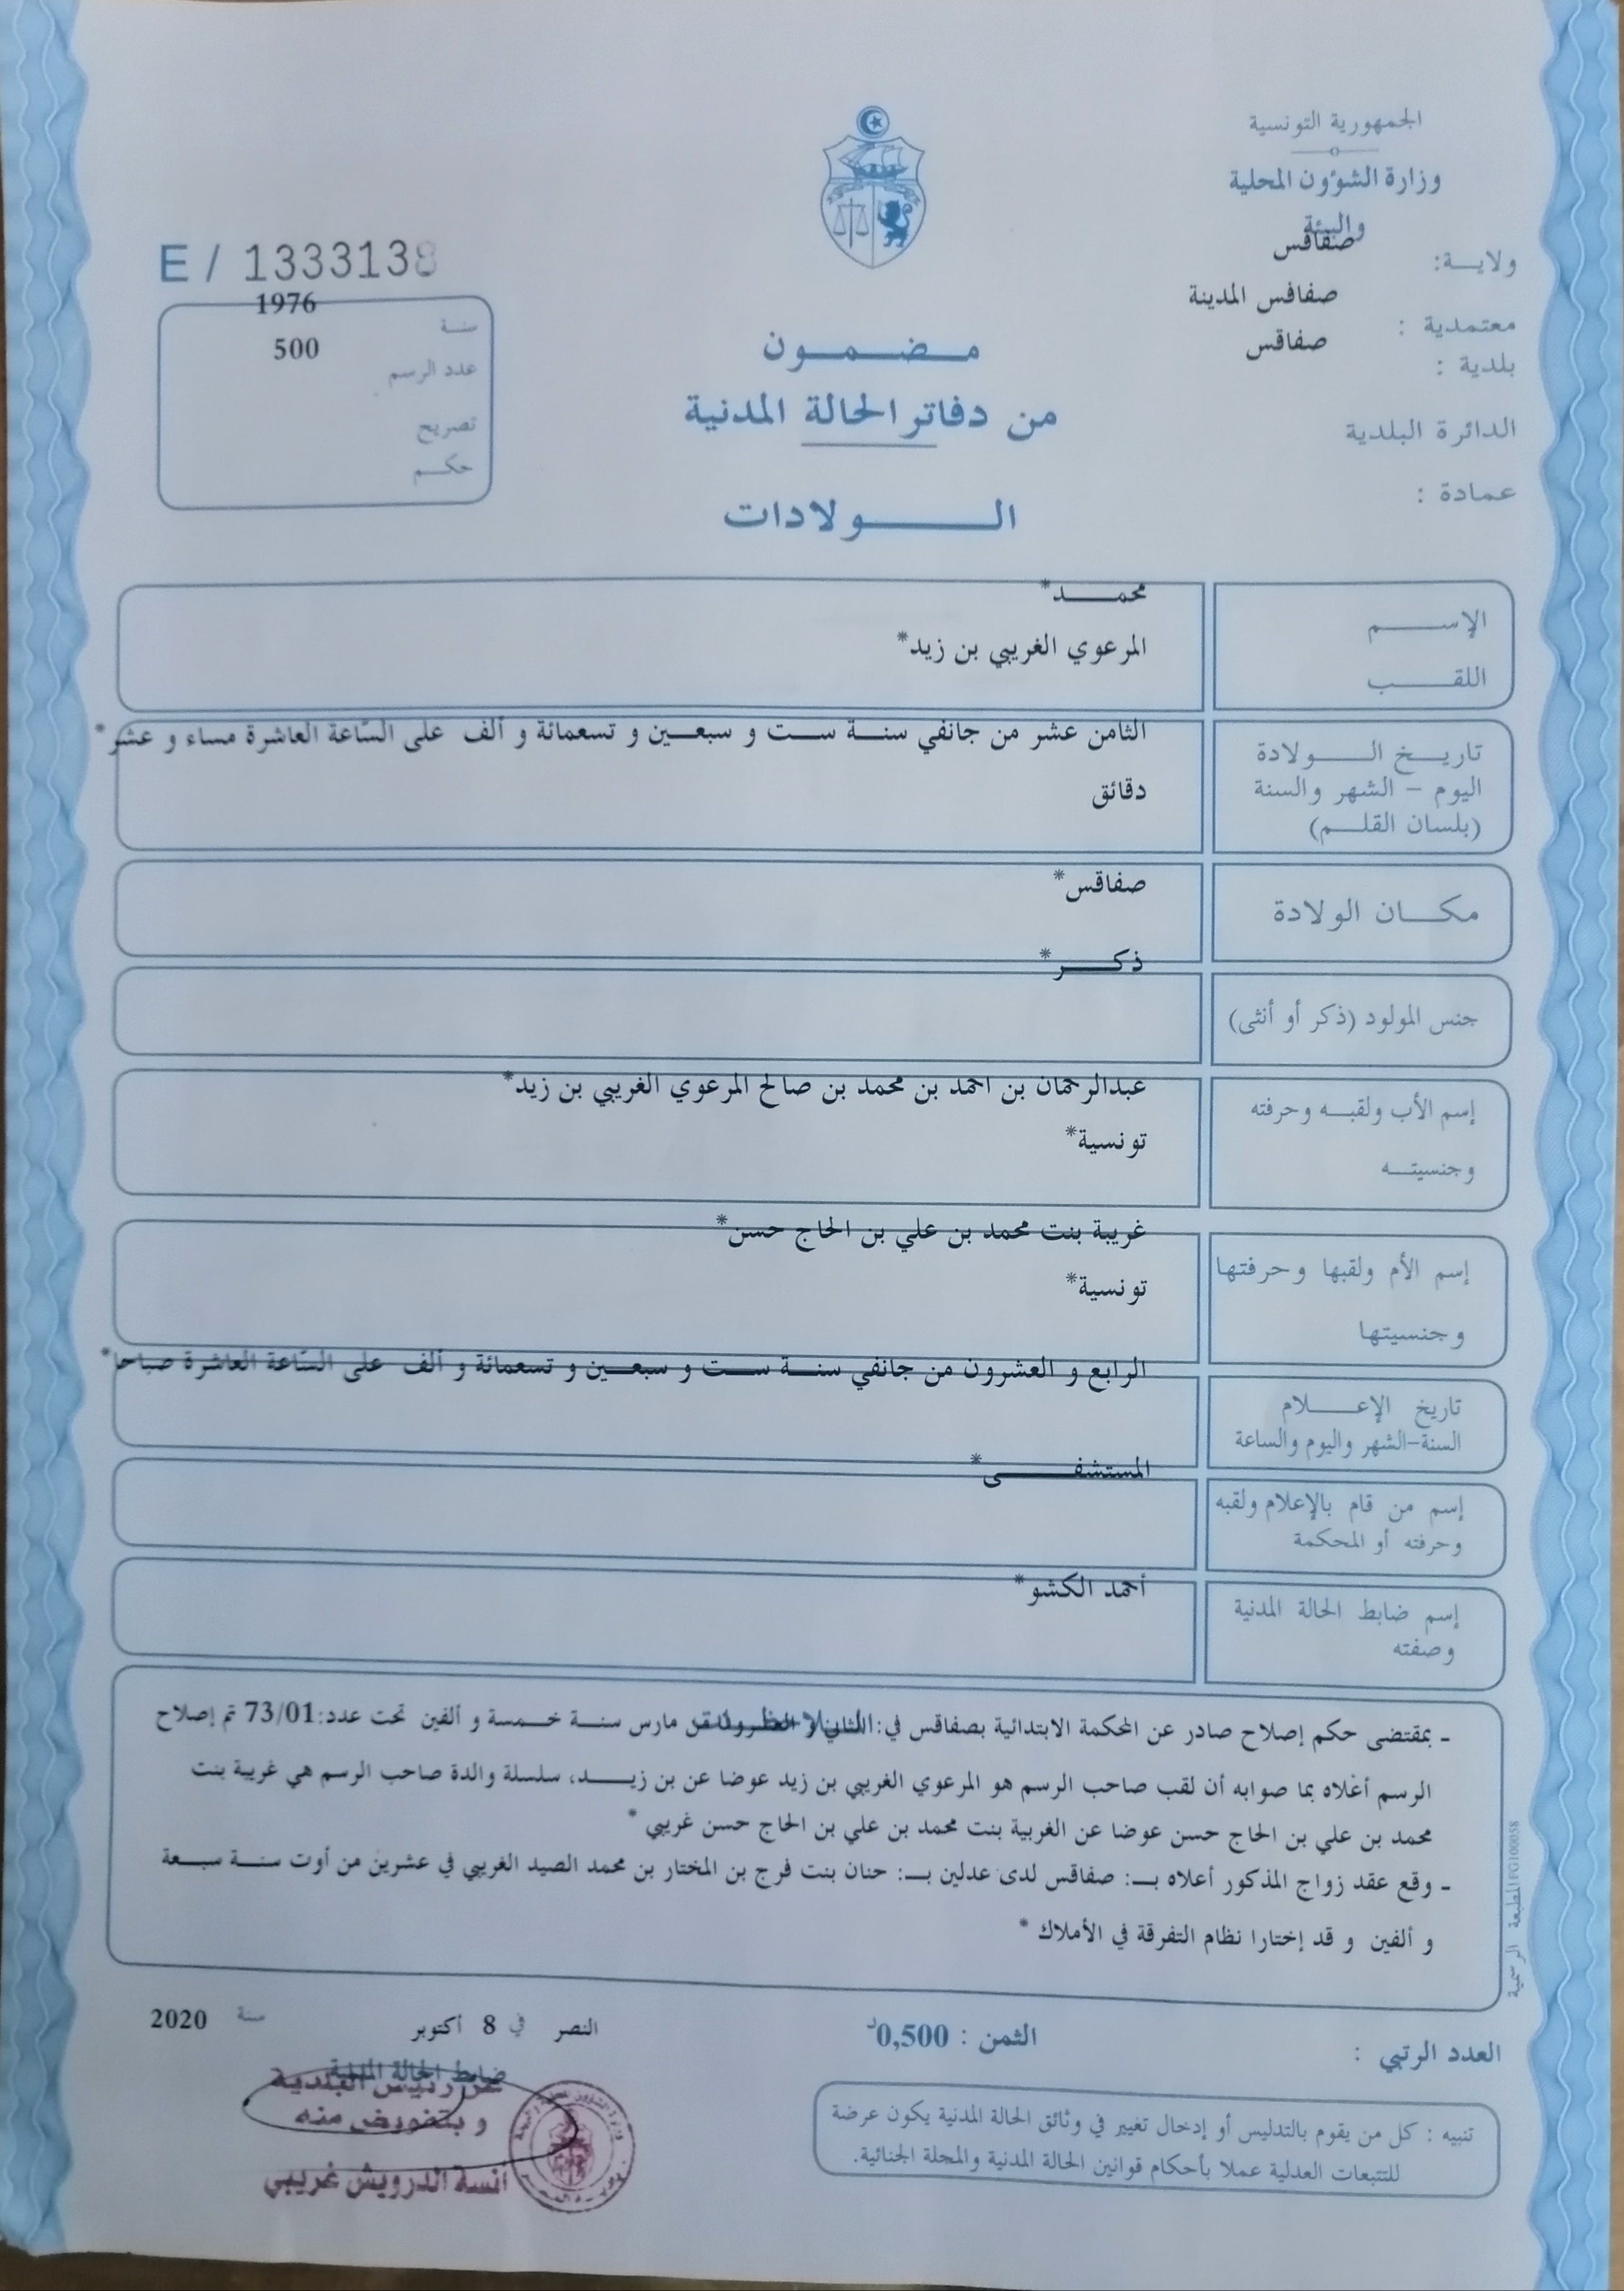 الجمهورية التونسية
وزارة الشؤون المحلية
والبيئة
ولايـة: صفاقس
معتمدية : صفاقس المدينة
بلدية : صفاقس
الدائرة البلدية
عمادة :
E / 1333138
سنة 1976
عدد الرسم 500
تصريح
حكم
مضمون
من دفاتر الحالة المدنية
الولادات
الإسم محمد*
اللقب المرعوي الغريبي بن زيد*
تاريخ الولادة
اليوم - الشهر والسنة
(بلسان القلم)
الثامن عشر من جانفي سنة ست و سبعين و تسعمائة و ألف على الساعة العاشرة مساء و عشر*
دقائق
مكان الولادة صفاقس*
جنس المولود (ذكر أو أنثى) ذكر*
إسم الأب ولقبه وحرفته
وجنسيته
عبدالرحمان بن احمد بن محمد بن صالح المرعوي الغريبي بن زيد*
تونسية*
إسم الأم ولقبها وحرفتها
وجنسيتها
غريبة بنت محمد بن علي بن الحاج حسن*
تونسية*
تاريخ الإعلام
السنة-الشهر واليوم والساعة
الرابع و العشرون من جانفي سنة ست و سبعين و تسعمائة و ألف على الساعة العاشرة صباحا*
إسم من قام بالإعلام ولقبه
وحرفته أو المحكمة
المستشفى*
إسم ضابط الحالة المدنية
وصفته
أحمد الكشو*
- بمقتضى حكم إصلاح صادر عن المحكمة الابتدائية بصفاقس في: من مارس سنة خمسة و ألفين تحت عدد:73/01 تم إصلاح
الرسم أعلاه بما صوابه أن لقب صاحب الرسم هو المرعوي الغريبي بن زيد عوضا عن بن زيد، سلسلة والدة صاحب الرسم هي غريبة بنت
محمد بن علي بن الحاج حسن عوضا عن الغريبة بنت محمد بن علي بن الحاج حسن غريبي *
- وقع عقد زواج المذكور أعلاه بـ: صفاقس لدى عدلين بـ: حنان بنت فرج بن المختار بن محمد الصيد الغريبي في عشرين من أوت سنة سبعة
و ألفين و قد إختارا نظام التفرقة في الأملاك *
المطبعة الرسمية
العدد الرتبي :
الثمن : 0,500د
النصر في 8 أكتوبر سنة 2020
ضابط الحالة المدنية
عن رئيس البلدية
و بتفويض منه
أنسة الدرويش غريبي
تنبيه : كل من يقوم بالتدليس أو إدخال تغيير في وثائق الحالة المدنية يكون عرضة
للتتبعات العدلية عملا بأحكام قوانين الحالة المدنية والمجلة الجنائية.